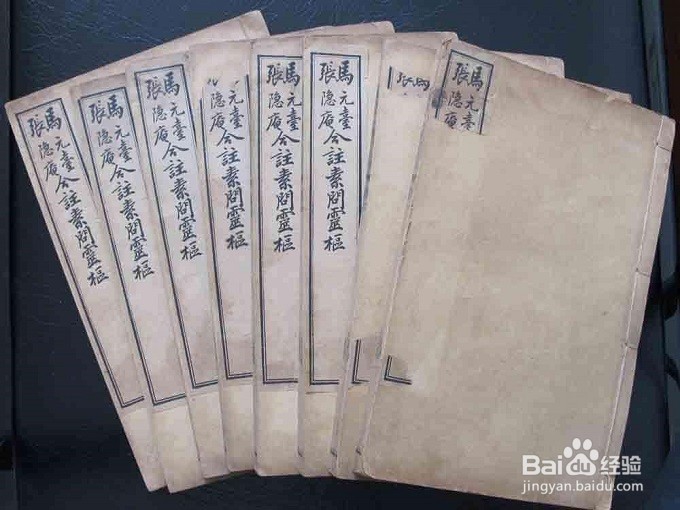 馬元臺
張隐庵
合註素問靈樞
馬元臺
張隐庵
合註素問靈樞
馬元臺
張隐庵
合註素問靈樞
元臺
隐庵
合註素問靈樞
馬元臺
張隐庵
合註素問靈樞
馬元臺
張隐庵
合註素問靈樞
馬
張
馬元臺
張隐庵
Bai du 经验
jingyan.baidu.com